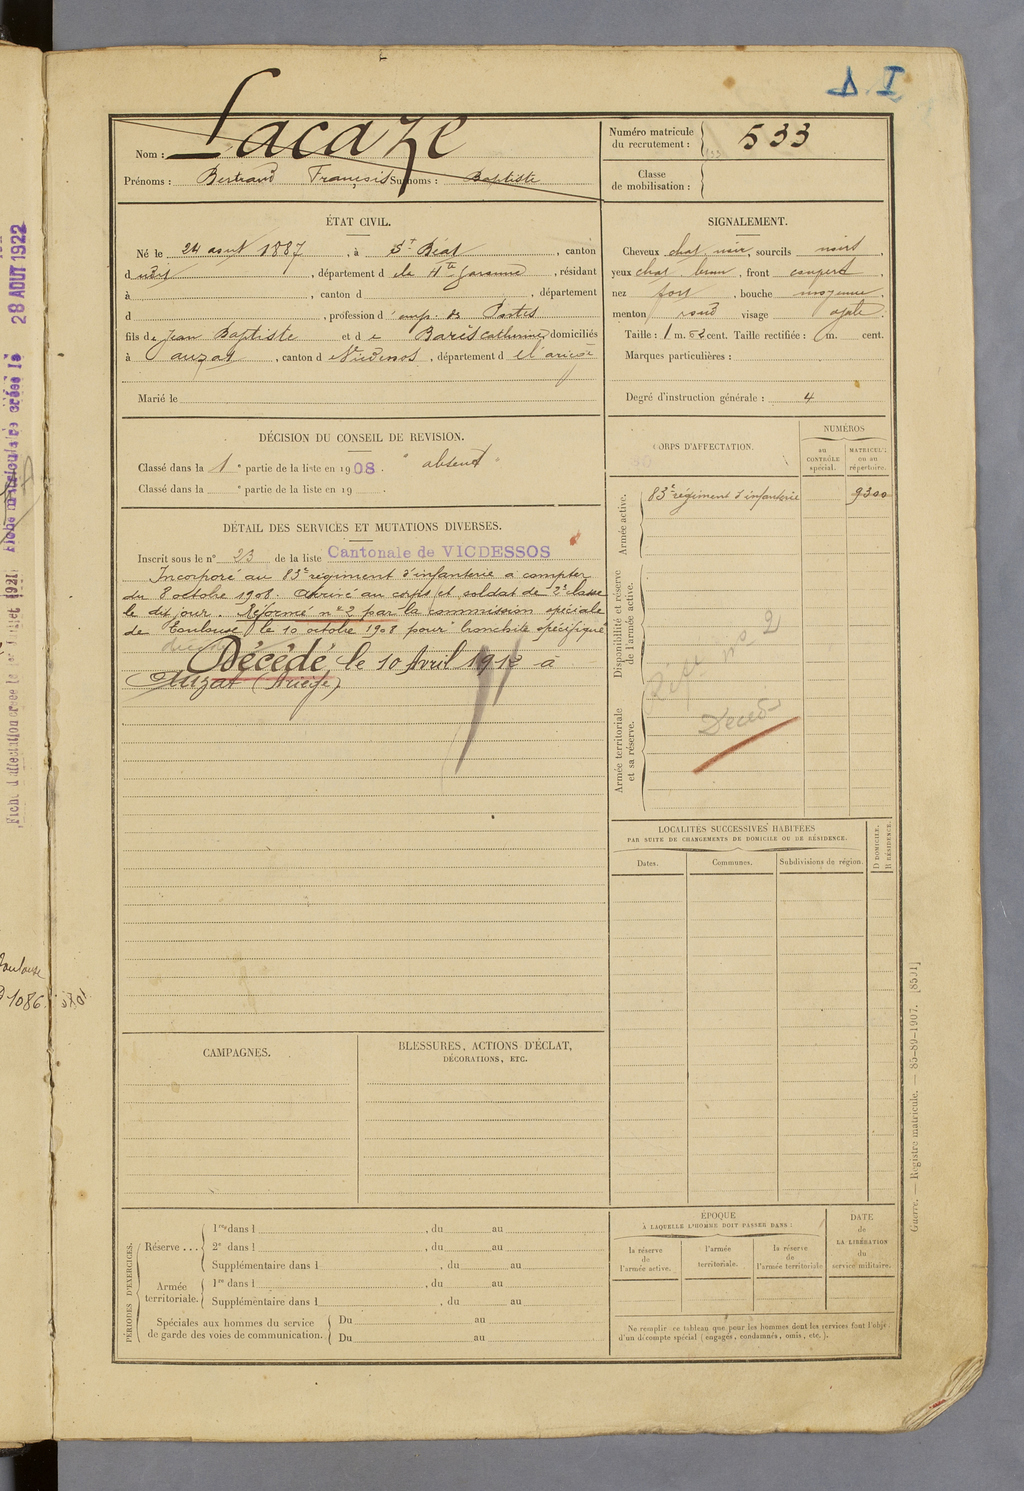 Δ. I
Nom : Lacaze
Prénoms : Bertrand François Surnoms : Baptiste
Numéro matricule
du recrutement : 533
Classe
de mobilisation :
ÉTAT CIVIL.
Né le 24 août 1887, à St Béat, canton
d udit, département d e la Hte Garonne, résidant
à , canton d , département
d , profession d' emp. des Postes
fils de Jean Baptiste et d e Barès Catherine domiciliés
à auzat, canton d Vicdessos, département d e l'ariège
Marié le
SIGNALEMENT.
Cheveux chat noir, sourcils noirs
yeux chat brun, front couvert
nez fort, bouche moyenne,
menton rond visage ovale.
Taille : 1 m. 62 cent. Taille rectifiée : 1 m. cent.
Marques particulières :
Degré d'instruction générale : 4
DÉCISION DU CONSEIL DE REVISION.
Classé dans la 1e partie de la liste en 1908. "absent"
Classé dans la e partie de la liste en 19 .
DÉTAIL DES SERVICES ET MUTATIONS DIVERSES.
Inscrit sous le n° 23 de la liste Cantonale de VICDESSOS
Incorporé au 83e régiment d'infanterie à compter
du 8 octobre 1908. Arrivé au corps et soldat de 2e classe
le dit jour. Réformé n° 2 par la commission spéciale
de Toulouse le 10 octobre 1908 pour "bronchite spécifique
Décédé, le 10 Avril 1912 à
Auzat (Ariège)
CORPS D'AFFECTATION.
NUMÉROS
au
CONTRÔLE
spécial.
MATRICULE
ou au
répertoire.
Armée active.
83e régiment d'infanterie 9300
Disponibilité et réserve
de l'armée active.
Réf n° 2
Armée territoriale
et sa réserve.
Décédé
LOCALITÉS SUCCESSIVES HABITÉES
PAR SUITE DE CHANGEMENTS DE DOMICILE OU DE RÉSIDENCE.
Dates.
Communes.
Subdivisions de région.
D DOMICILE.
R RÉSIDENCE.
CAMPAGNES.
BLESSURES, ACTIONS D'ÉCLAT,
DÉCORATIONS, ETC.
PÉRIODES D'EXERCICES.
Réserve ...
1re dans l , du au
2e dans l , du au
Supplémentaire dans l , du au
Armée
territoriale.
1re dans l , du au
Supplémentaire dans l , du au
Spéciales aux hommes du service
de garde des voies de communication.
Du au
Du au
ÉPOQUE
À LAQUELLE L'HOMME DOIT PASSER DANS :
la réserve
de
l'armée active.
l'armée
territoriale.
la réserve
de
l'armée territoriale
DATE
de
LA LIBÉRATION
du
service militaire.
Ne remplir ce tableau que pour les hommes dont les services font l'objet
d'un décompte spécial (engagés, condamnés, omis, etc.).
Guerre. — Registre matricule. — 85-89-1907. [8501]
28 AOUT 1922
Toulouse
1086